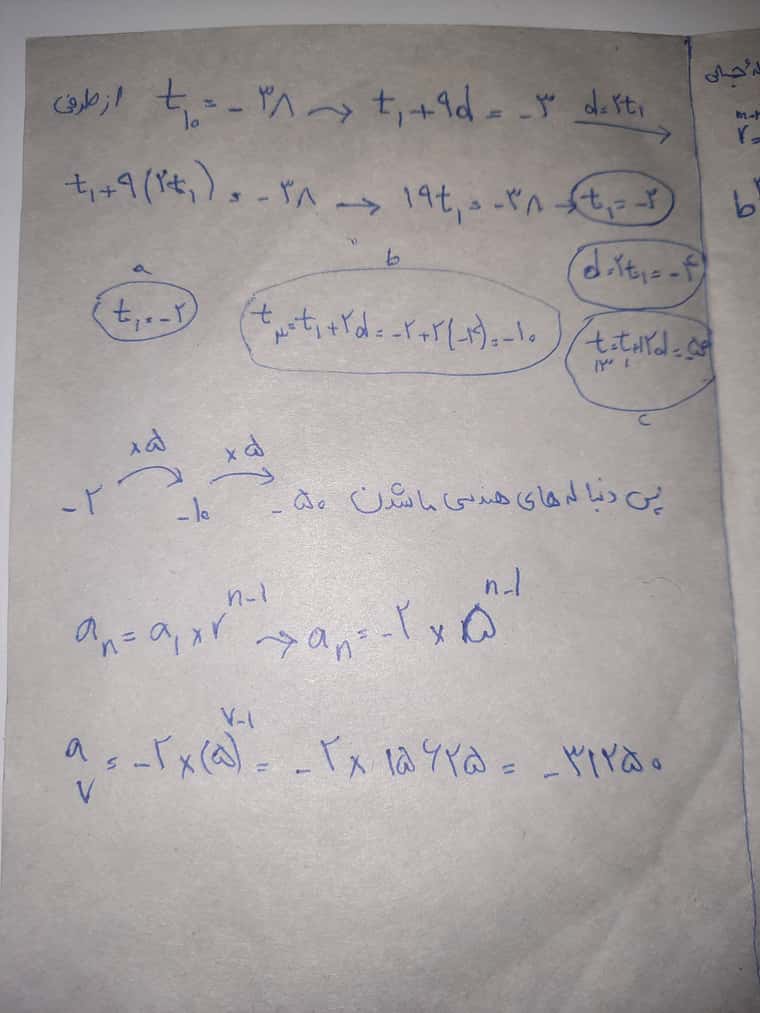 از طرفی t₁₀ = -۳۸ → t₁ + ۹d = -۳ d=۲t₁ →
t₁ + ۹(۲t₁) = -۳۸ → ۱۹t₁ = -۳۸ → t₁ = -۲
d = ۲t₁ = -۴
a
t₁ = -۲
b
t₃ = t₁ + ۲d = -۲ + ۲(-۴) = -۱۰
t₁₃ = t₁ + ۱۲d =
c
×۵ ×۵
-۲ -۱۰ -۵۰ پس دنباله های هندسی ما شدن
aₙ = a₁ × rⁿ⁻¹ → aₙ = -۲ × ۵ⁿ⁻¹
a₇ = -۲ × (۵)⁷⁻¹ = -۲ × ۱۵۶۲۵ = -۳۱۲۵۰